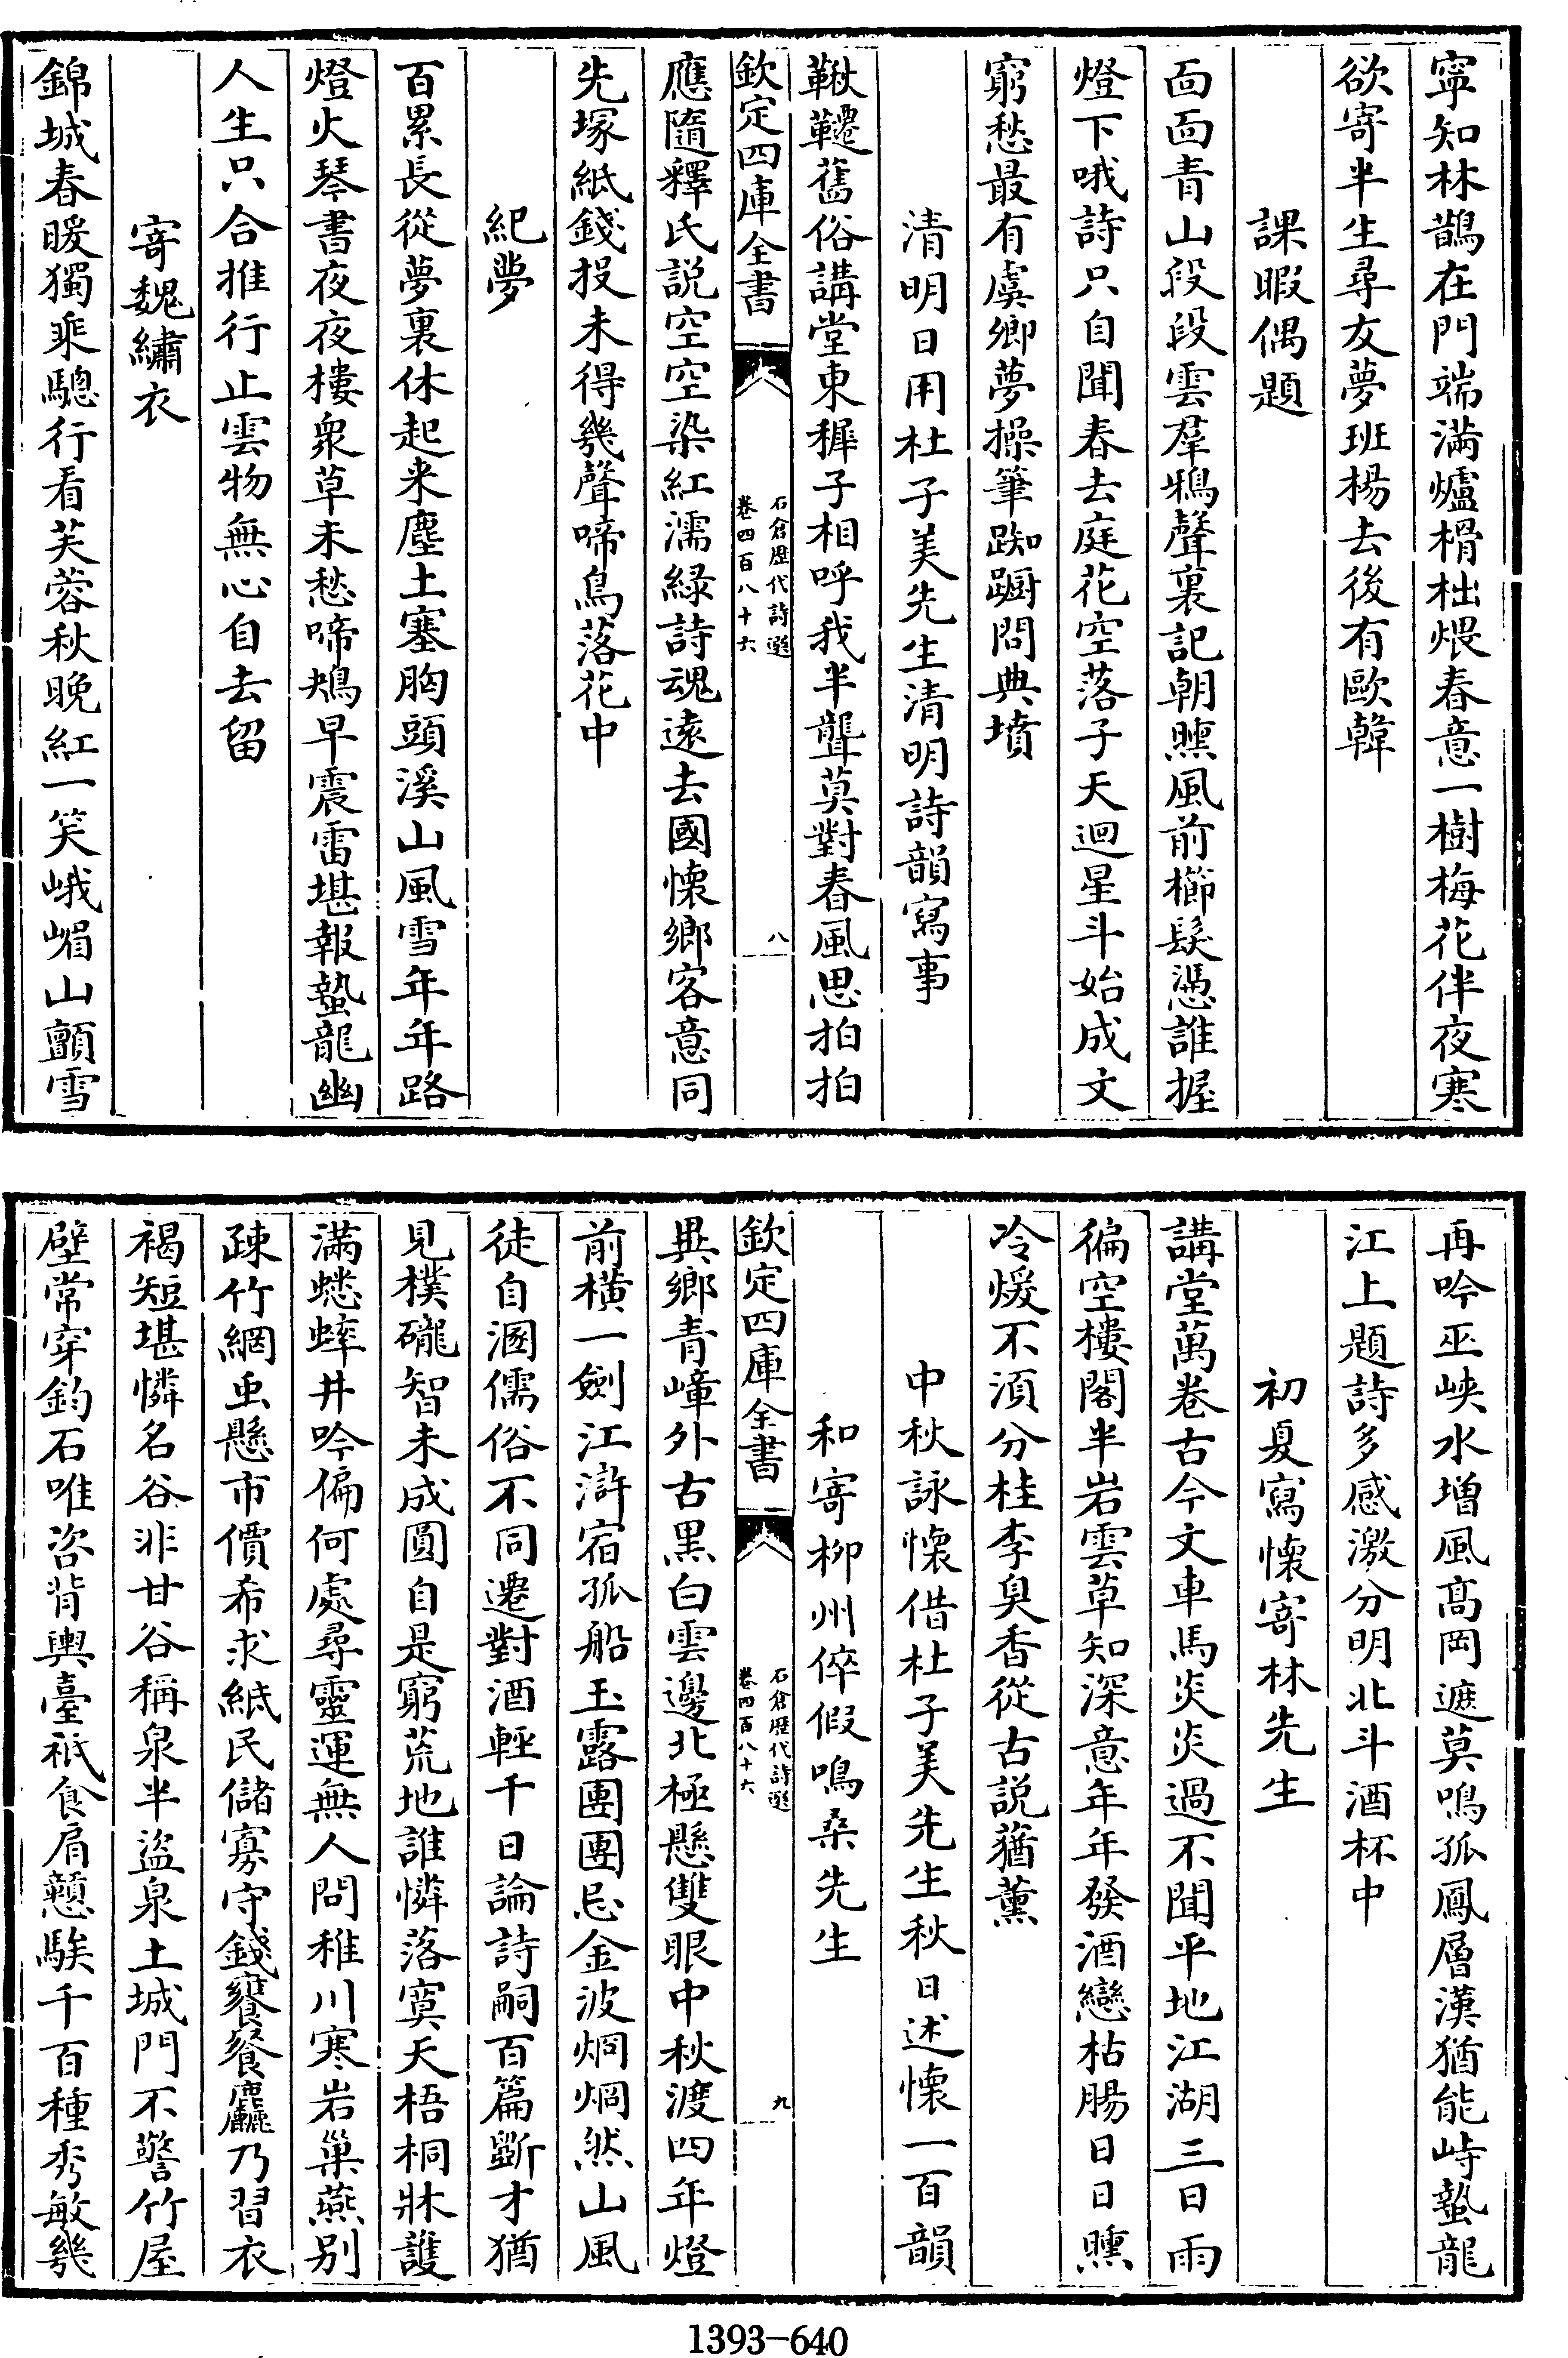 寜知林鵲在門端滿爐榾柮煨春意一樹梅花伴夜寒
欲寄半生尋友夢班楊去後有歐韓
課暇偶題
面面青山段段雲羣鴉聲裏記朝曛風前櫛髮憑誰握
燈下哦詩只自聞春去庭花空落子天迴星斗始成文
窮愁最有虞鄉夢操筆踟蹰問典墳
清明日用杜子美先生清明詩韻寫事
鞦韆舊俗講堂東穉子相呼我半聾莫對春風思拍拍
欽定四庫全書
石倉歷代詩選
卷四百八十六
八
應隨釋氏説空空染紅濡緑詩魂遠去國懷鄉客意同
先塚紙錢投未得幾聲啼鳥落花中
紀夢
百累長從夢裏休起来塵土塞胸頭溪山風雪年年路
燈火琴書夜夜樓衆草未愁啼鴂早震雷堪報蟄龍幽
人生只合推行止雲物無心自去留
寄魏繡衣
錦城春暖獨乘驄行看芙蓉秋晚紅一笑峨嵋山顫雪
再吟巫峽水增風高岡遮莫鳴孤鳳層漢猶能峙蟄龍
江上題詩多感激分明北斗酒杯中
初夏寫懷寄林先生
講堂萬卷古今文車馬炎炎過不聞平地江湖三日雨
徧空樓閣半岩雲草知深意年年發酒戀枯腸日日曛
冷煖不須分桂李臭香從古説蕕薰
中秋詠懷借杜子美先生秋日述懷一百韻
和寄柳州倅假鳴桑先生
欽定四庫全書
石倉歷代詩選
卷四百八十六
九
異鄉青嶂外古黑白雲邊北極懸雙眼中秋渡四年燈
前横一劍江滸宿孤船玉露團團忌金波烱烱然山風
徒自溷儒俗不同遷對酒輕千日論詩嗣百篇斵才猶
見樸礲智未成圓自是窮荒地誰憐落寞天梧桐牀護
滿蟋蟀井吟偏何處尋靈運無人問稚川寒岩巢燕别
疎竹網虫懸市價希求紙民儲寡守錢饔餐麤乃習衣
褐短堪憐名谷非甘谷稱泉半盜泉土城門不警竹屋
壁常穿鈞石唯咨背輿臺祇食肩戇騃千百種秀敏幾
1393-640